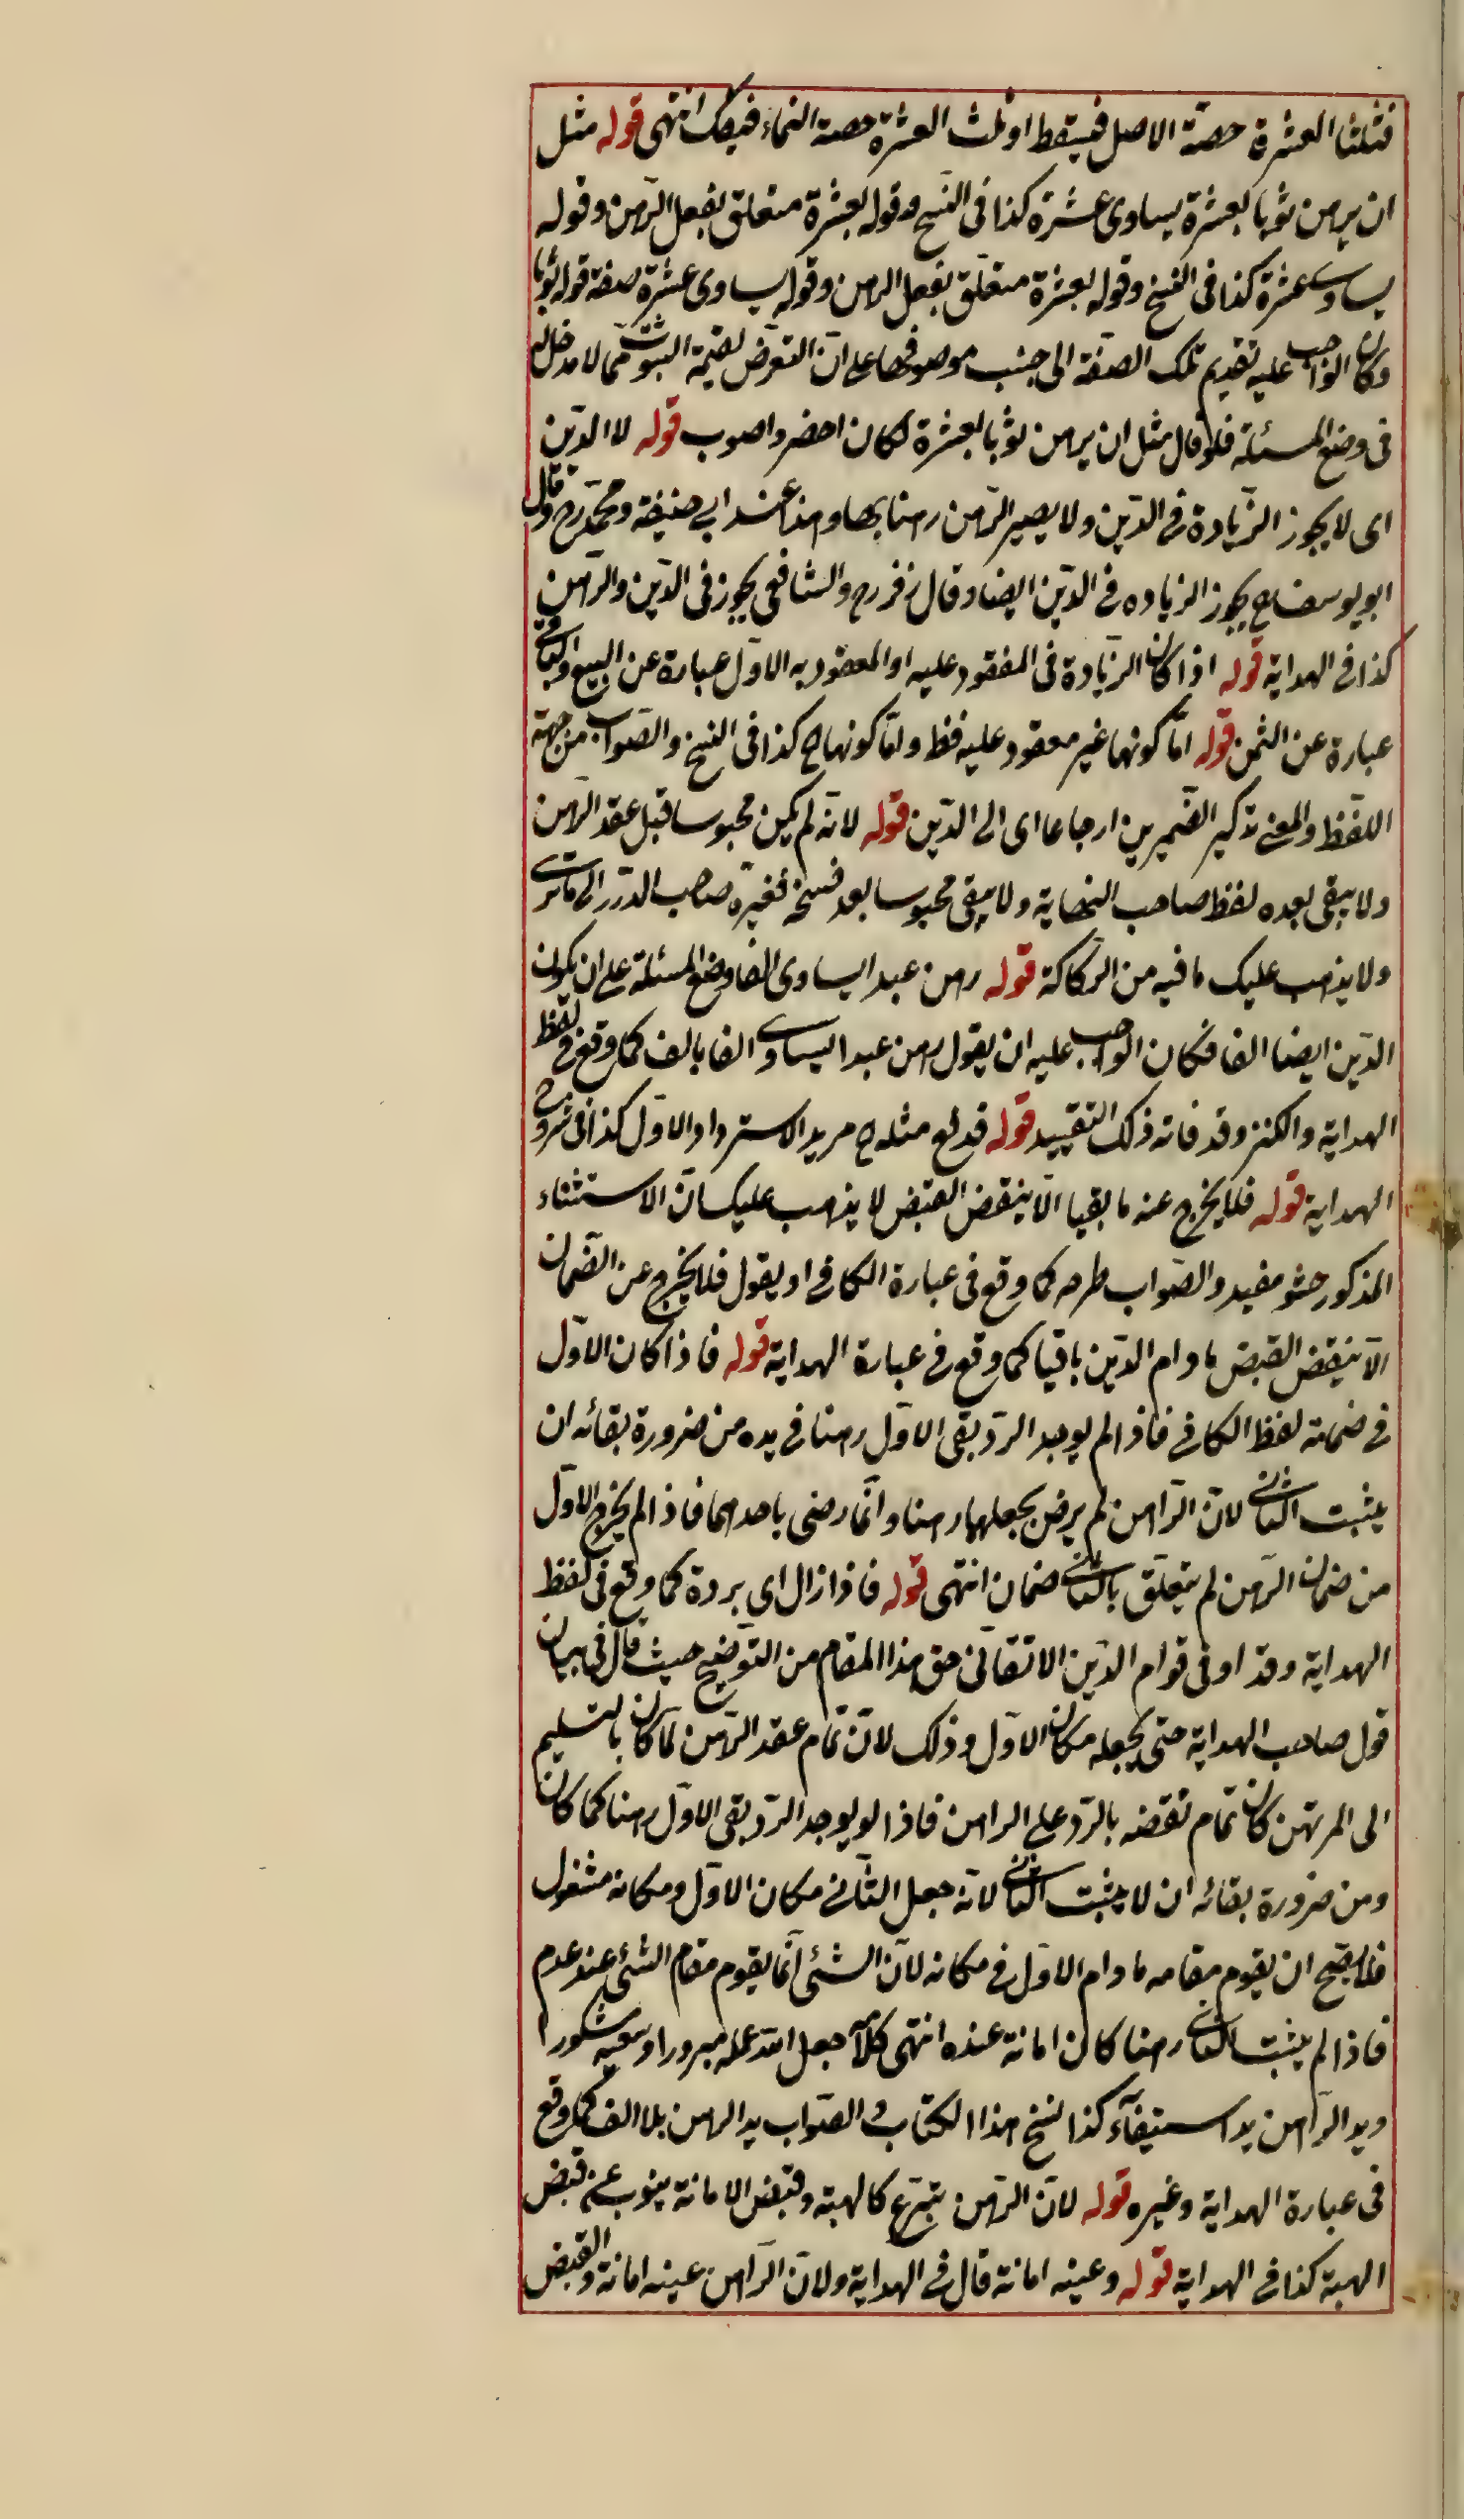 فثلثا العشرة حصّة الاصل فيسقط او ثلث العشرة حصة النماء فيفك انتهى قوله مثل
ان يرهن ثوبا بعشرة يساوى عشرة كذا فى النسخ وقوله بعشرة متعلق بفعل الرهن وقوله
يساوى عشرة كذا فى النسخ وقوله بعشرة متعلّق بفعل الرهن وقوله يساوى عشرة صفة قوله ثوبا
وكان الواجب عليه تقديم تلك الصّفة الى جنب موصوفها على انّ التعرّض لقيمة الثوب ممّا لا مدخل له
فى وضع المسئلة فلو قال مثل ان يرهن ثوبا بعشرة لكان اخصر واصوب قوله لا الدّين
اى لا يجوز الزّيادة فى الدّين ولا يصير الرّهن رهنا بها وهذا عند ابى حنيفة ومحمّد رح وقال
ابو يوسف رح يجوز الزياده فى الدّين ايضا وقال زفر رح والشافعى يجوز فى الدّين والرّهن
كذا فى الهداية قوله اذا كان الزّيادة فى المعقود عليه او المعقود به الاوّل عبارة عن البيع والثانى
عبارة عن الثمن قوله امّا كونها غير معقود عليه فظ ولمّا كونها ح كذا فى النسخ والصّواب من جهة
اللّفظ والمعنى تذكير الضّميرين ارجاعا اى الى الدّين قوله لانّه لم يكن محبوسا قبل عقد الرّهن
ولا يبقى بعده لفظ صاحب النهاية ولا يبقى محبوسا بعد فسخه فغيّره صاحب الدّرر الى ما ترى
ولا يذهب عليك ما فيه من الرّكاكة قوله رهن عبدا يساوى الفا وضع المسئلة على ان يكون
الدّين ايضا الفا فكان الواجب عليه ان يقول رهن عبدا يساوى الفا بالف كما وقع فى لفظ
الهداية والكنز وقد فاته ذلك التقييد قوله فدفع مثله ح مريد الاسترداد الاوّل كذا فى شروح
الهداية قوله فلا يخرج عنه ما بقيا الّا بنقض القبض لا يذهب عليك انّ الاستثناء
المذكور حشو مفيد والصّواب طرحه كما وقع فى عبارة الكافى او يقول فلا يخرج عن الضّمان
الّا بنقض القبض ما دام الدّين باقيا كما وقع فى عبارة الهداية قوله فاذا كان الاوّل
فى ضمانه لفظ الكافى فاذا لم يوجد الردّ بقى الاوّل رهنا فى يده من ضرورة بقائه ان
يثبت الثانى لانّ الرّاهن لم يرض بجعلهما رهنا وانّما رضى باحدهما فاذا لم يخرج الاوّل
من ضمان الرّهن لم يتعلّق بالثانى ضمان انتهى قوله فاذا زال اى برده كما وقع فى لفظ
الهداية وقد اوفى قوام الدّين الاتقانى حق هذا المقام من التوضيح حيث قال فى بيان
قول صاحب الهداية حتى يجعله مكان الاوّل وذلك لانّ تمام عقد الرّهن لمّا كان بالتسليم
الى المرتهن كان تمام نقضه بالرّد على الراهن فاذا لو يوجد الردّ بقى الاوّل رهنا كما كان
ومن ضرورة بقائه ان لا يثبت الثانى لانّه جعل الثّانى مكان الاوّل ومكانه مشغول
فلا يصّح ان يقوم مقامه ما دام الاوّل فى مكانه لانّ الشئ انّما يقوم مقام الشئ عند عدم
فاذا لم يثبت الثانى رهنا كان امانة عنده انتهى كلامه جعل الله عمله مبرورا وسعيه مشكورا
ويد الرّاهن يد استيفاء كذا نسخ هذا الكتاب والصّواب يد الرهن بلا الف كما وقع
فى عبارة الهداية وغيره قوله لانّ الرّهن تبّرع كالهبة وقبض الامانة ينوب عن قبض
الهبة كذا فى الهداية قوله وعينه امانة قال فى الهداية ولانّ الرّاهن عينه امانة والقبض